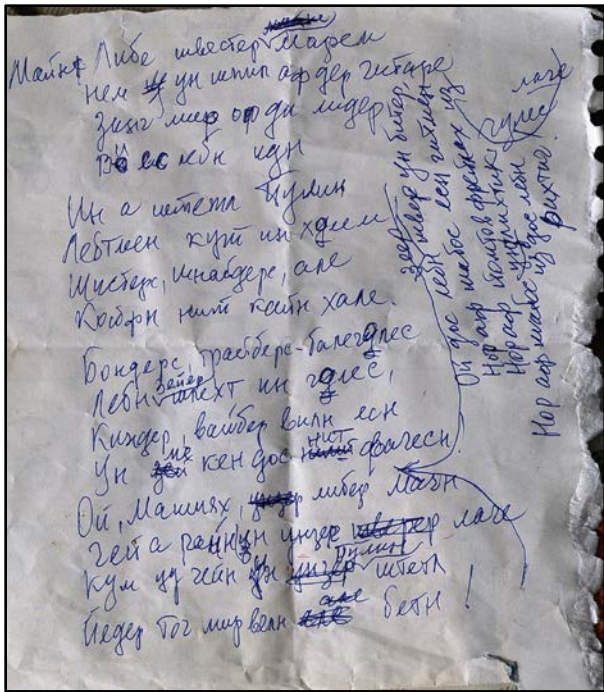 Майне Либе швестер Марем
Нем ун шпил аф дер гитаре
Зинг мир ди лидер,
Ви лебн идн
Ин а штетл Пулин
Лебтмен кут ин холем
Шистерх, шнайдерс, але
Кобрн нит кайн хале.
Бондерс, трайберс-балеголес
Лебн зейер шлехт ин голес,
Киндер, вайбер вилн есн
Ун ме кен дос нит фаргесн
Ой, Машиях, либер Майн
Гей а райн ун ундзер лаге
Кум цу гейн ин Пулин штетл
Йедер тог мир велн але бетн!
Ой дос лебн швер ун битер,
Нор аф шабос есн гитнен
Нор аф йонтов фрейлах из
Нор аф
Нор аф из дос лебн рихтиг.
гулес
лаге